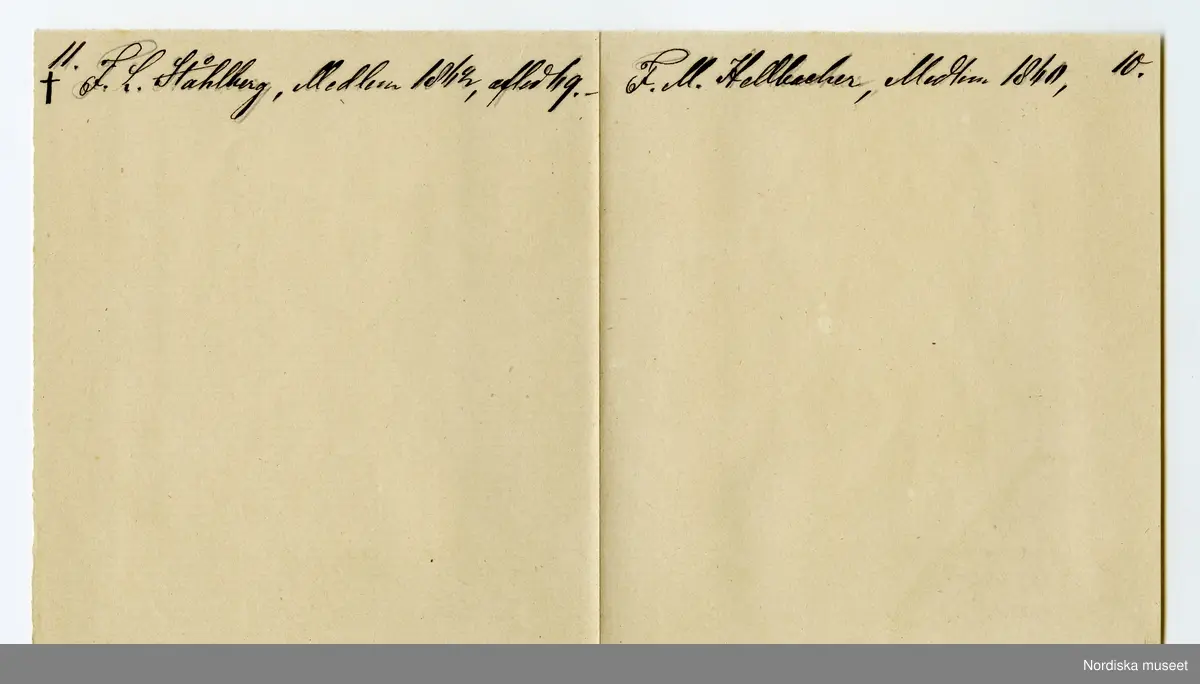 11.
† F. L. Ståhlberg, Medlem 1842, afled 49. –
F. M. Hellbacher, Medlem 1840, 10.
Nordiska museet